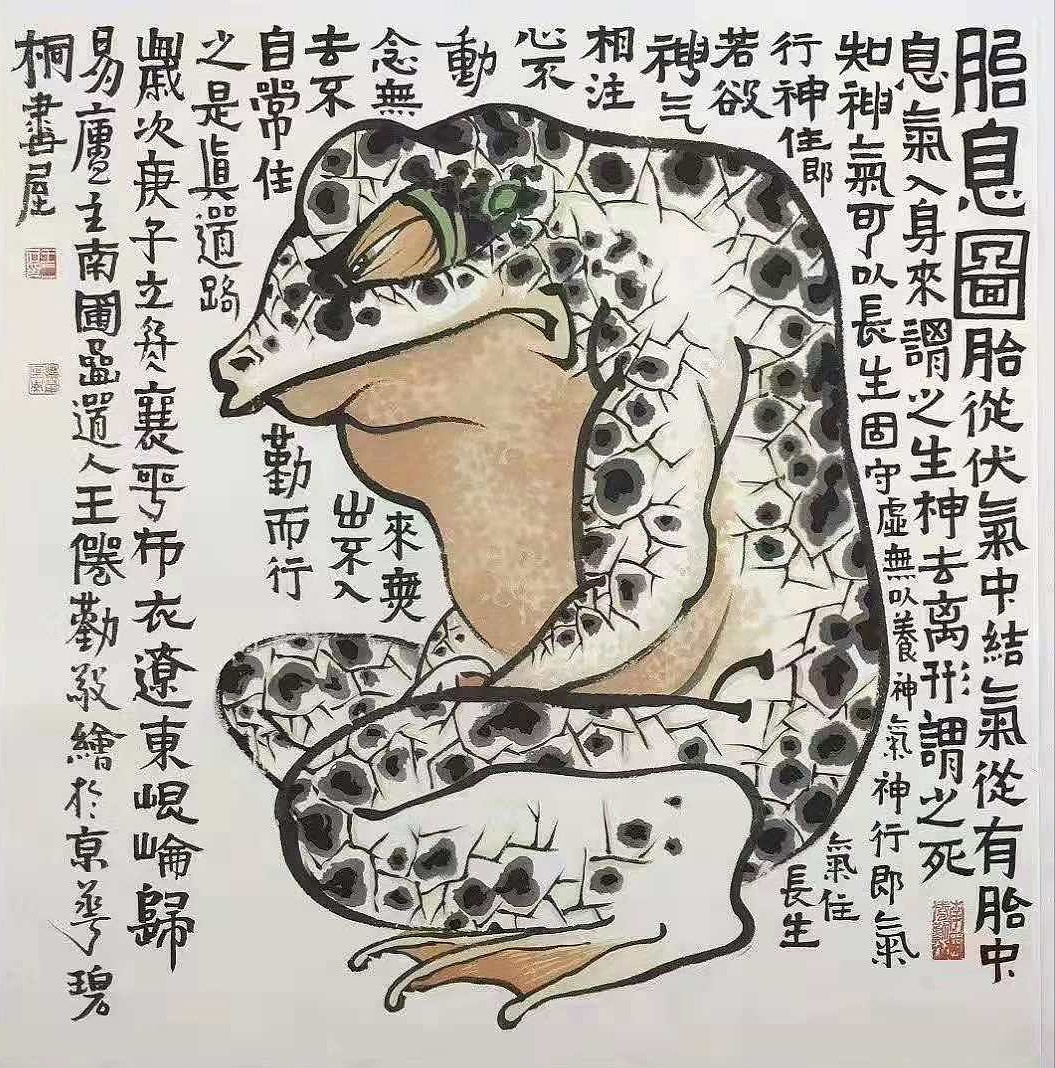 胎息圖胎從伏氣中結氣從有胎中
息氣入身來謂之生神去离形謂之死
知神氣可以長生固守虛無以養神氣神行即氣
行神住即
氣住
若欲
長生
神气
相注
心不
動
念無
來無
去不
出不入
自常住
勤而行
之是眞道路
歲次庚子立襄平布衣遼東崐崘歸
易廬主南圃道人王倦勤敬繪於京華碧
桐書屋